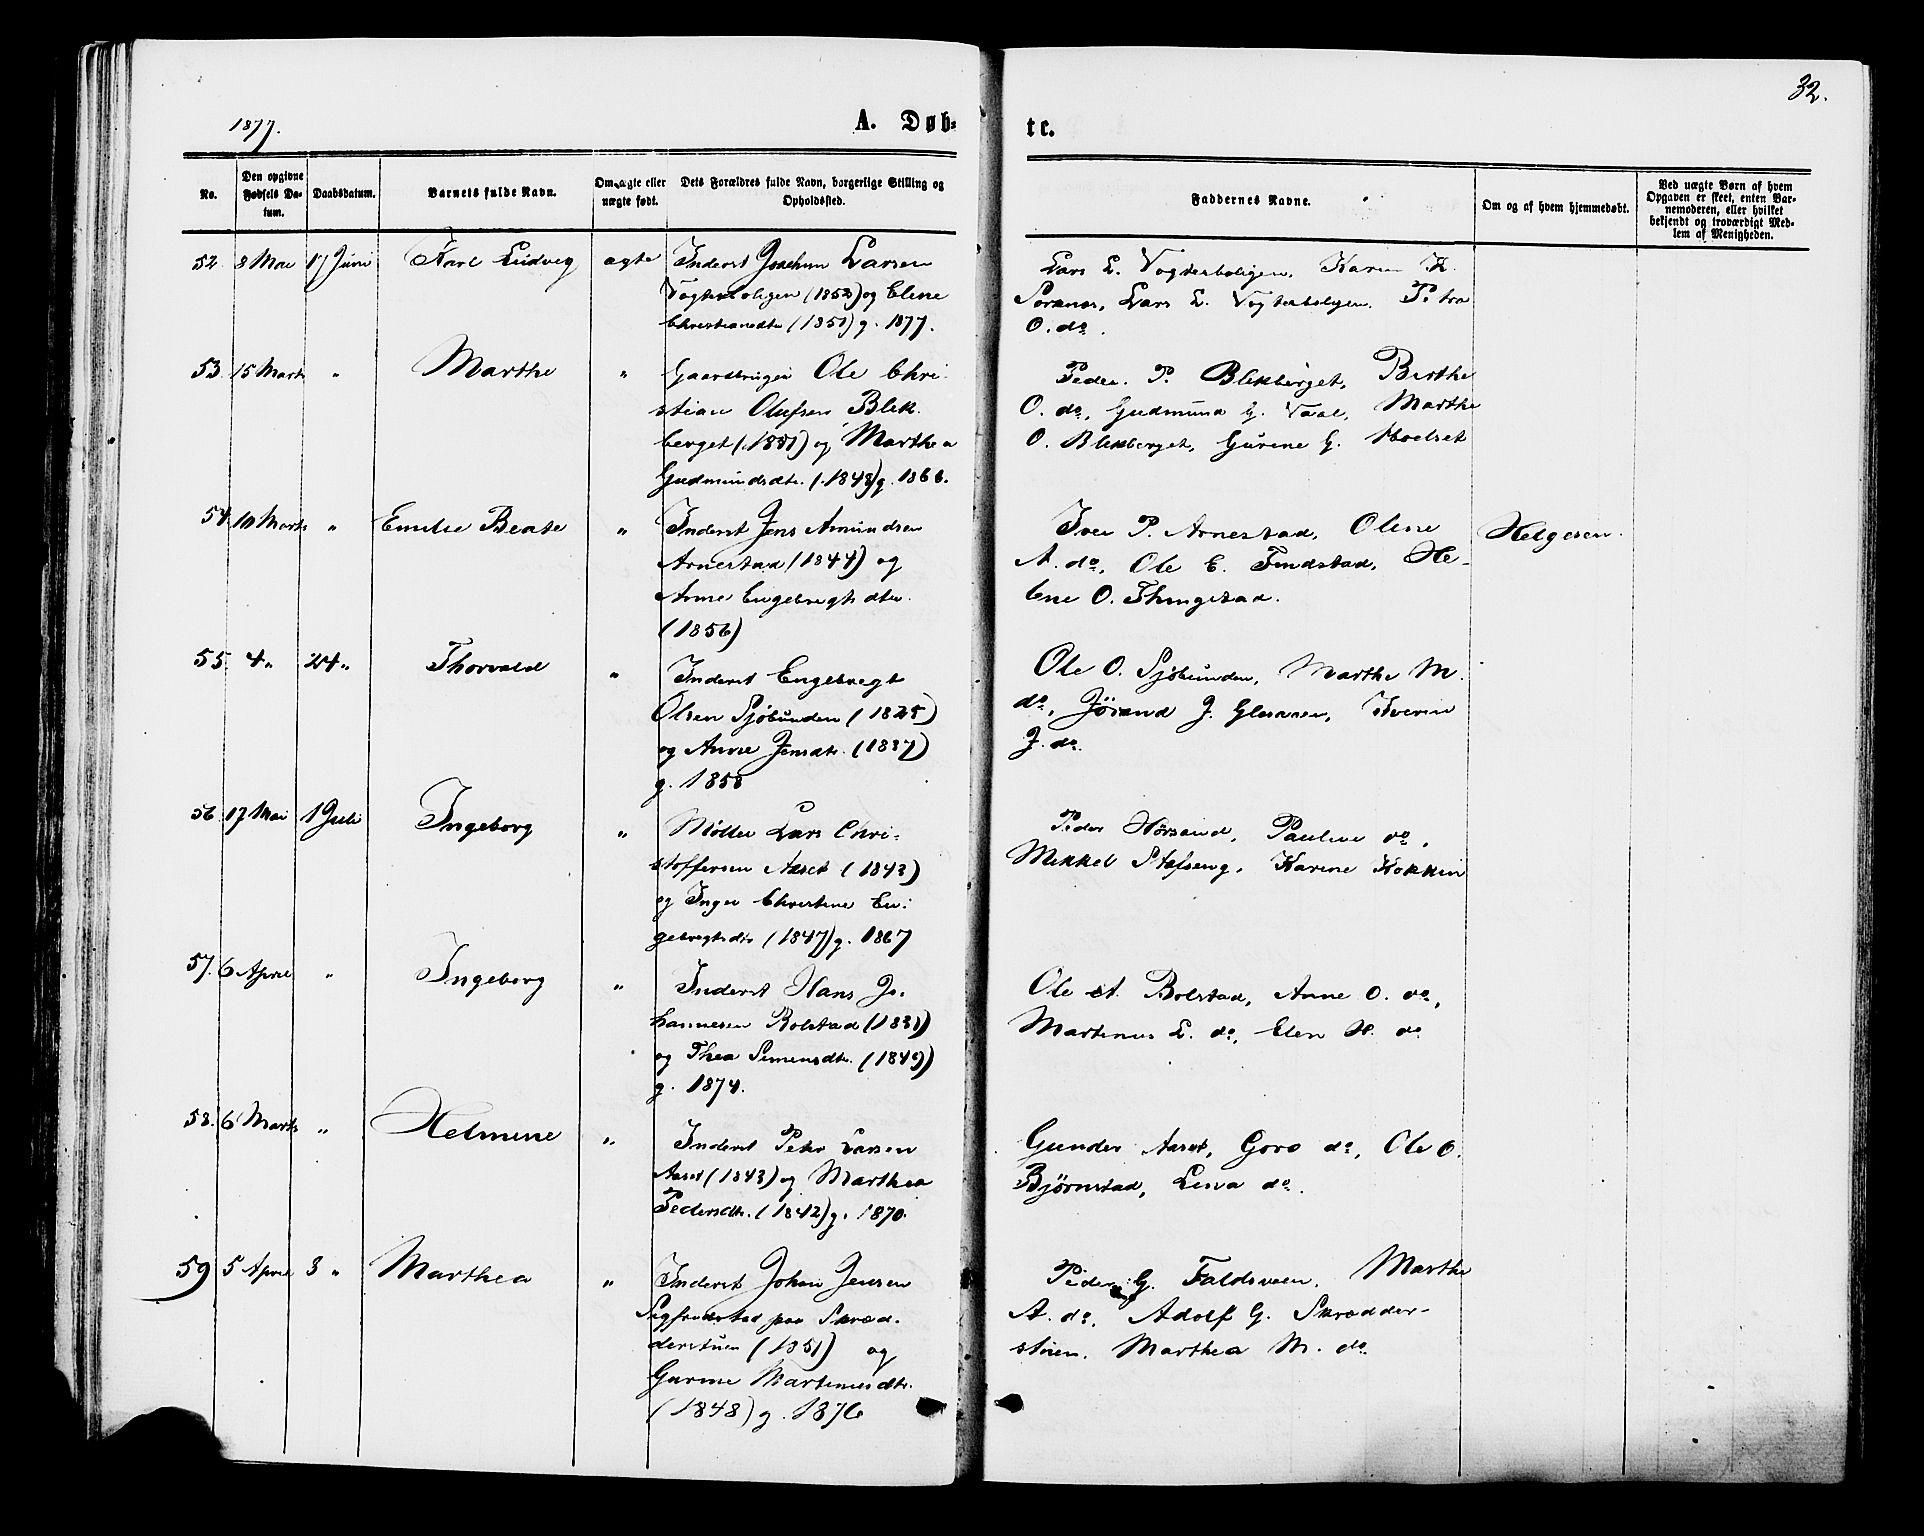 32.
1877.
A. Døb-
te.
No.
Den opgivne Fødsels Da-tum.
Daabsdatum.
Barnets fulde Navn.
Om ægte eller uægte født.
Dets Forældres fulde Navn, borgerlige Stilling og Opholdssted.
Faddernes Navne.
Om og af hvem hjemmedøbt.
Ved uægte Børn af hvem Opgaven er skeet, enten Bar-nemoderen, eller hvilket bekjendt og troværdigt Med-lem af Menigheden.
52. 8 Mai 17 Juni Karl Ludvig ægte Inderst Joachim Larsen
Vogterboligen (1852) og Elene
Christiansdtr (1851) g. 1877.
Lars L. Vogterboligen, Karen K.
Lars L. Vogterboligen, Petra
O. do.
53. 15 Marts " Marthe " Gaardbruger Ole Chri-
stian Olufsen Blek-
berget (1831) og Marthea
Gudmundsdtr. (1843) g. 1866.
Peder P. Blekberget, Berthe
O. do, Gudmund G. Vaal, Marthe
O. Blekberget, Gurine G. Moelset
54. 10 Marts " Emilie Beate " Inderst Jens Amundsen
Arnestad (1844) og
Anne Engebregtsdtr.
(1856)
Iver P. Arnestad, Olene
A. do, Ole E. Findstad, He-
lene O. Thingstad.
Helgesen.
55. 4 " 24 " Thorvald " Inderst Engebregt
Olsen Sjøbunden (1825)
og Anne Jensdtr. (1837)
g. 1858
Ole O. Sjøbunden, Marthe M.
do, Jørand J.
J. do.
56. 17 Mai 1 Juli Ingeborg " Møller Lars Chri-
stoffersen Aaset (1843)
og Inger Christine En-
gebregtsdtr (1847) g. 1867
Peder Hørsand, Pauline do,
Mikkel Stafseng, Karine Kokkin
57. 6 April " Ingeborg " Inderst Hans Jo-
hannesen Bolstad (1831)
og Thea Simensdtr. (1849)
g. 1874.
Ole A. Bolstad, Anne O. do,
Martinus L. do, Elen H. do
58. 6 Marts " Helmine " Inderst Peter Larsen
Aaset (1843) og Marthea
Pedersdtr. (1842) g. 1870.
Gunder Aaset, Goro do, Ole O.
Bjørnstad, Lina do.
59 5 April 8 " Marthea " Inderst Johan Jensen
Sigfredstad paa Skræd-
derstuen (1851) og
Gurine Martinusdtr.
(1848) g. 1876
Peder G. Faldsveen, Marthe
A. do, Adolf G. Skrædder-
stuen, Marthea M. do